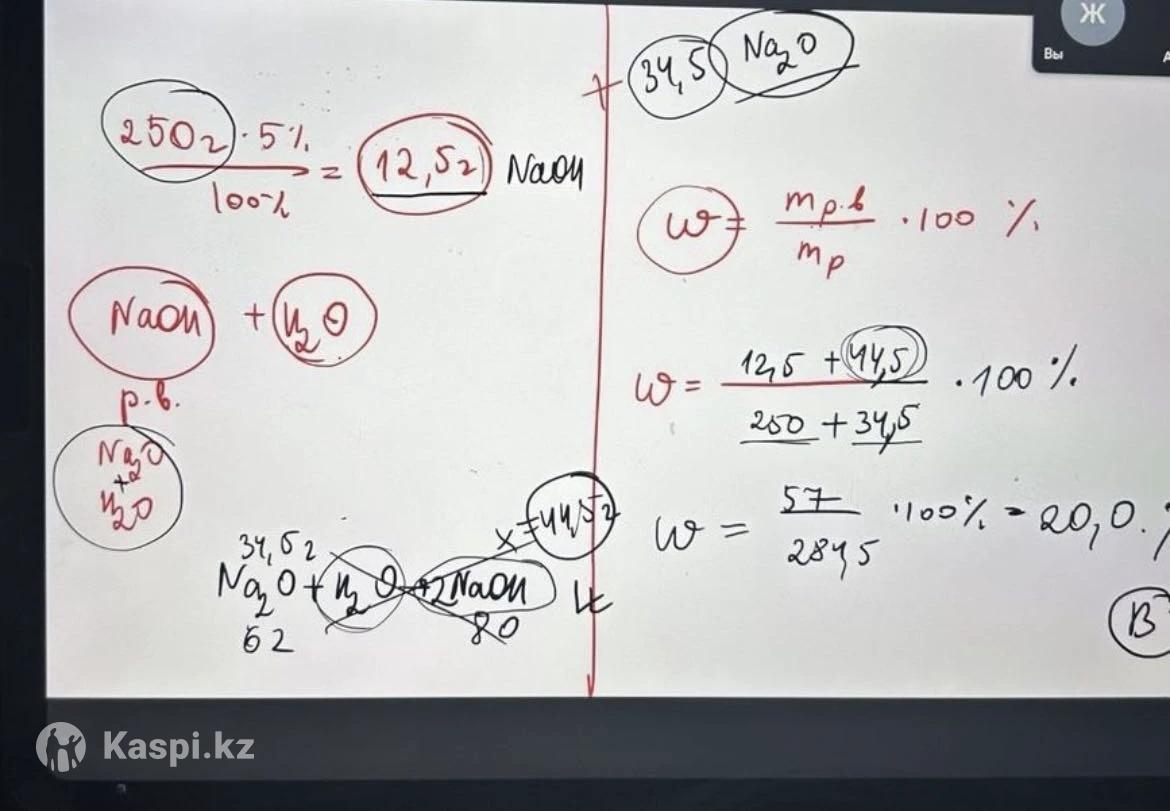 250г · 5%
100%
= 12,5г NaOH
NaOH + H₂O
р.в.
Na₂O
+
H₂O
34,5г
x = 44,5г
Na₂O + H₂O → 2NaOH
62
80
+ 34,5 Na₂O
Вы
Ж
ω = mр.в / mр · 100 %
ω = 12,5 + 44,5 / 250 + 34,5 · 100 %
ω = 57 / 284,5 · 100% = 20,0 %
B
Kaspi.kz